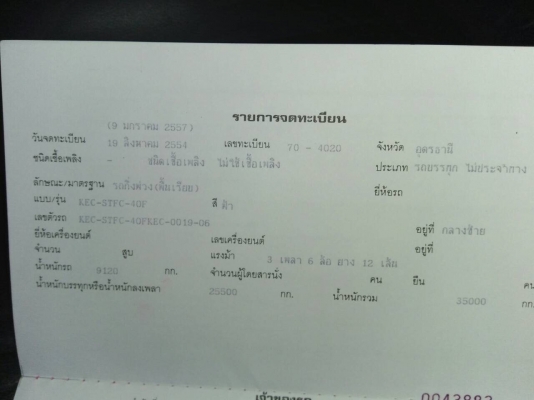 รายการจดทะเบียน
(9 มกราคม 2557)
วันจดทะเบียน 19 สิงหาคม 2554 เลขทะเบียน 70 - 4020 จังหวัด อุดรธานี
ชนิดเชื้อเพลิง - ชนิดเชื้อเพลิง ไม่ใช้เชื้อเพลิง ประเภท รถบรรทุก ไม่ประจำทาง
ลักษณะ/มาตรฐาน รถกึ่งพ่วง(พื้นเรียบ) ยี่ห้อรถ
แบบ/รุ่น KEC-STFC-40F สี ฟ้า
เลขตัวรถ KEC-STFC-40FKEC-0019-06 อยู่ที่ กลางซ้าย
ยี่ห้อเครื่องยนต์ เลขเครื่องยนต์ อยู่ที่
จำนวน สูบ แรงม้า 3 เพลา 6 ล้อ ยาง 12 เส้น
น้ำหนักรถ 9120 กก. จำนวนผู้โดยสารนั่ง คน ยืน คน
น้ำหนักบรรทุกหรือน้ำหนักลงเพลา 25500 กก. น้ำหนักรวม 35000 กก.
เจ้าของรถ